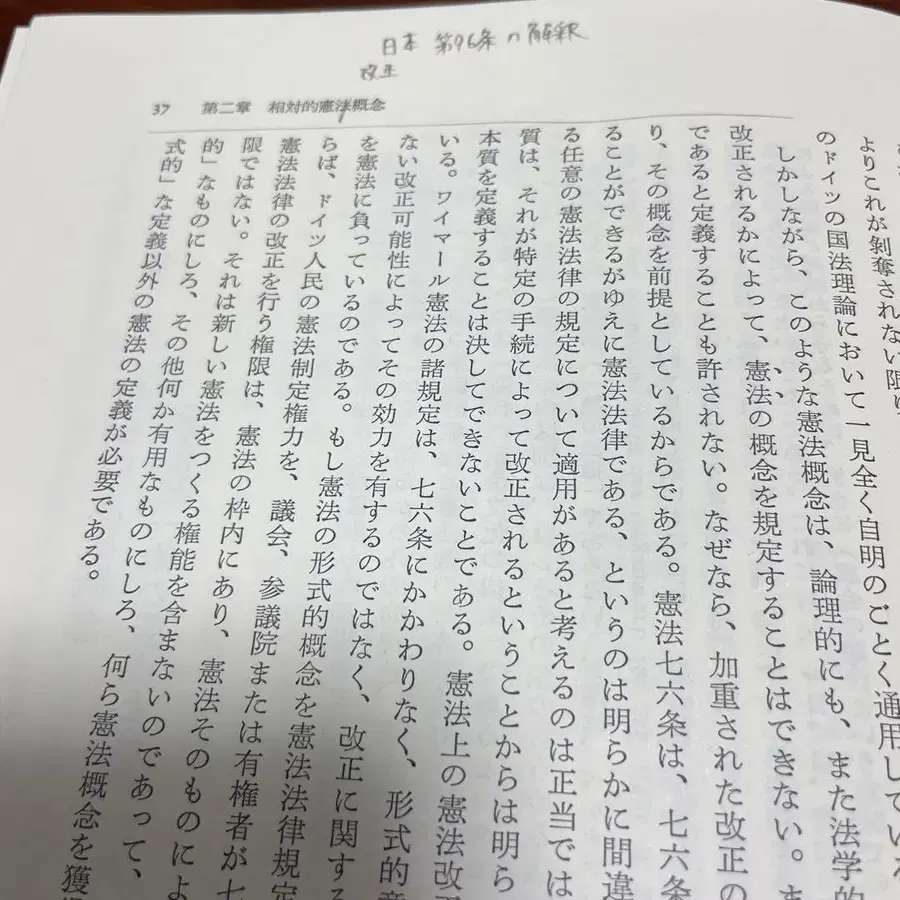 日本 第96条の解釈
改正
37 第二章 相対的憲法概念
よりこれが剝奪されない限り
のドイツの国法理論において一見全く自明のごとく通用している
しかしながら、このような憲法概念は、論理的にも、また法学的
改正されるかによって、憲法の概念を規定することはできない。ま
であると定義することも許されない。なぜなら、加重された改正の
り、その概念を前提としているからである。憲法七六条は、七六条
ることができるがゆえに憲法法律である、というのは明らかに間違
る任意の憲法法律の規定について適用があると考えるのは正当では
質は、それが特定の手続によって改正されるということからは明ら
本質を定義することは決してできないことである。憲法上の憲法改正
いる。ワイマール憲法の諸規定は、七六条にかかわりなく、形式的意
ない改正可能性によってその効力を有するのではなく、改正に関する
を憲法に負っているのである。もし憲法の形式的概念を憲法法律規定
らば、ドイツ人民の憲法制定権力を、議会、参議院または有権者が七
憲法法律の改正を行う権限は、憲法の枠内にあり、憲法そのものによ
限ではない。それは新しい憲法をつくる権能を含まないのであって、
的」なものにしろ、その他何か有用なものにしろ、何ら憲法概念を獲
式的」な定義以外の憲法の定義が必要である。